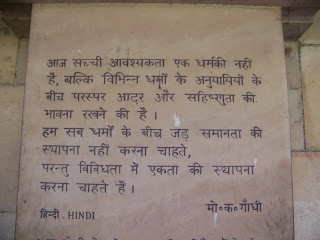 आज सच्ची आवश्यकता एक धर्मकी नहीं
है, बल्कि विभिन्न धर्मों के अनुयायियो के
बीच परस्पर आदर और सहिष्णुता की
भावना रखने की है ।
हम सब धर्मों के बीच जड़ समानता की
स्थापना नहीं करना चाहते,
परन्तु विविधता में एकता की स्थापना
करना चाहते हैं ।
मो॰क॰गाँधी
हिन्दी . HINDI